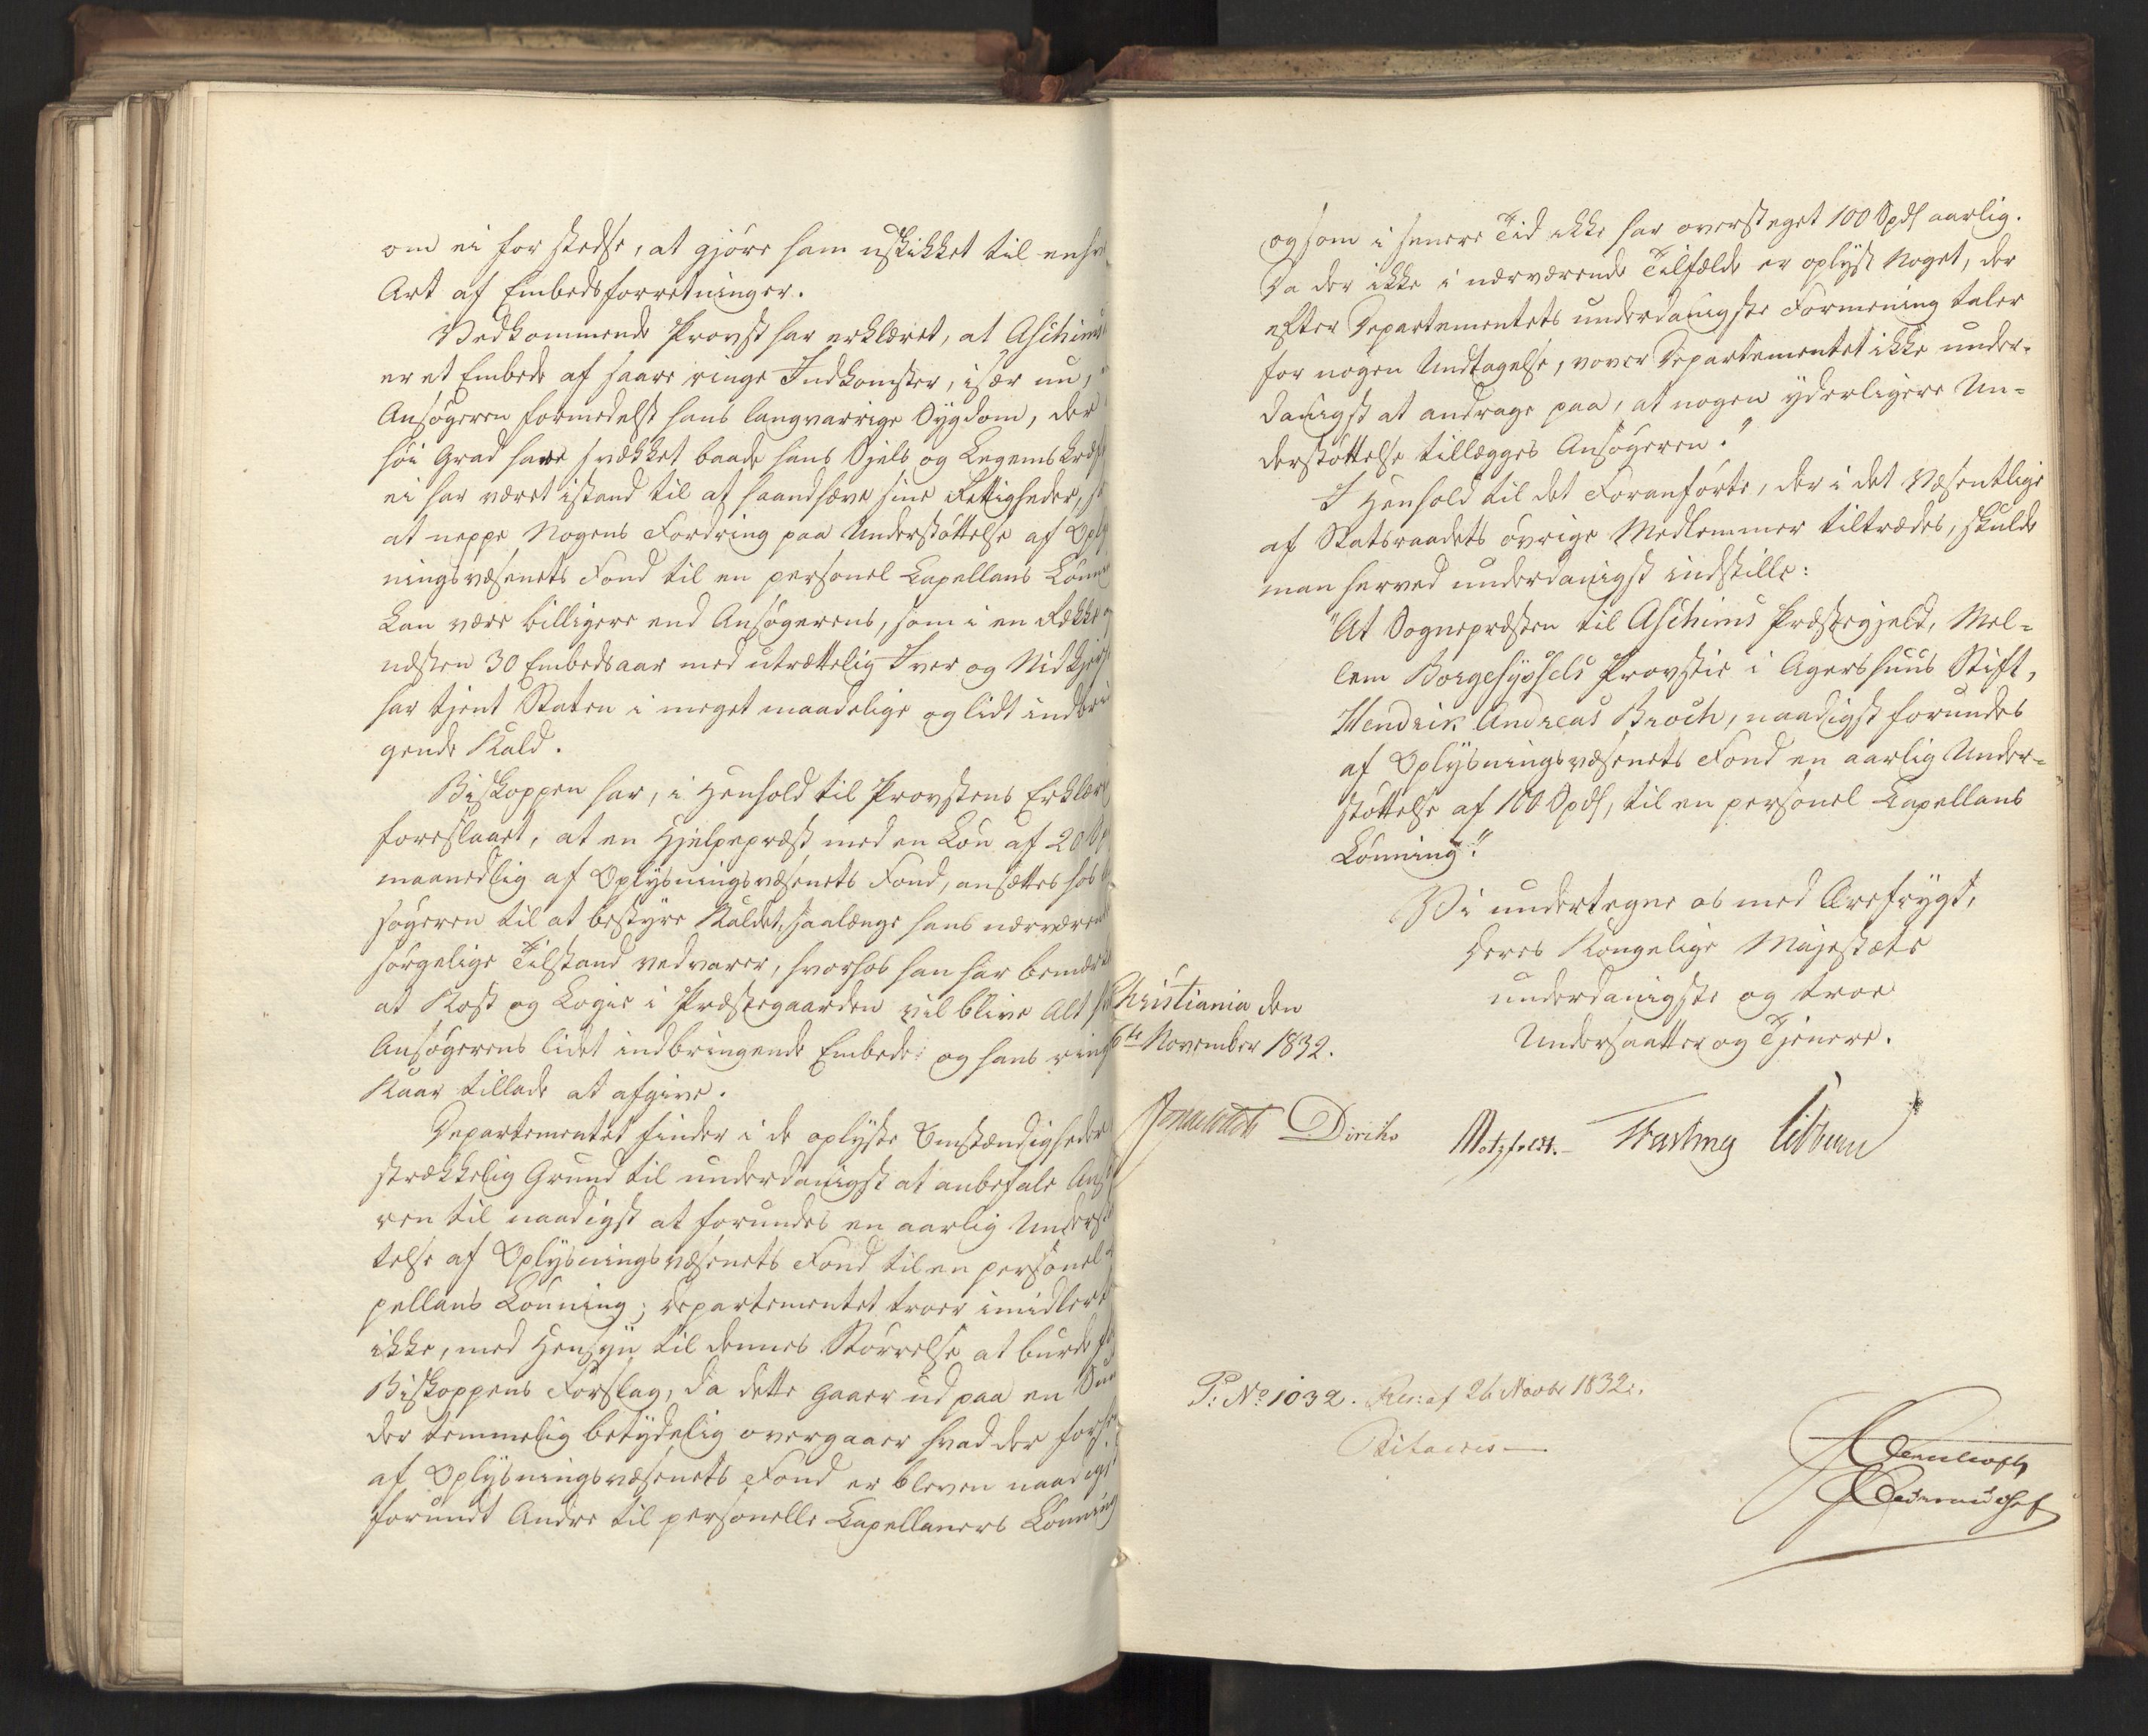 om ei for stedse, at gjöre ham uskikket til enhv
Art af Embedsforretninger.
Vedkommende Provst har erklæret, at Aschims
er et Embede af saare ringe Indkomster, især nu,
Ansögeren formedelst hans langvarige Sygdom, der
höi Grad have svækket baade hans Sjels og Legemskræf
ei har været istand til at haandhæve sine Rettigheder,
at neppe Nogens Fordring paa Understöttelse af Oply
ningsvæsenets Fond til en personel Capellans Lönni
kan være billigere end Ansögerens, som i en Række
næsten 30 Embedsaar med utrættelig Iver og Nidkjer
har tjent Staten i meget maadelige og lidt indbrin
gende Kald.
Biskoppen har, i Henhold til Provstens Erklær
foreslaaet, at en Hjelpepræst med en Lön af 20 Sp
maanedlig af Oplysningsvæsenets Fond, ansættes hos
sögeren til at bestyre Kaldet, saalænge hans nærværen
sörgelige Tilstand vedvarer, hvorhos han har bemær
at Kost og Logis i Præstegaarden vil blive Alt
Ansögerens lidet indbringende Embede og hans ring
Kaar tillade at afgive.
Departementet finder i de oplyste Omstændigheder
strækkelig Grund til underdanigst at anbefale Ans
ren til naadigst at forundes en aarlig Underst
telse af Oplysningsvæsenets Fond til en personel
pellans Lönning; Departementet troer imidlert
ikke, med Hensyn til dennes Störrelse at burde
Biskoppens Forslag, da dette gaaer ud paa en Sum
der temmelig betydelig overgaaer hvad der forh
af Oplysningsvæsenets Fond er bleven naadigst
forundt Andre til personelle Capellaners Lönning
og som i senere Tid ikke har oversteget 100 Spds aarlig.
Da der ikke i nærværende Tilfælde er oplyst Noget, der
efter Departementets underdanigste Formening taler
for nogen Undtagelse, vover Departementet ikke under-
danigst at andrage paa, at nogen yderligere Un-
derstöttelse tillægges Ansögeren."
I Henhold til det Foranförte, der i det Væsentlige
af Statsraadets övrige Medlemmer tiltrædes, skulde
man herved underdanigst indstille:
"At Sognepræsten til Aschims Præstegjeld, Mel-
lem Borgesyssels Provstie i Agershuus Stift,
Hendrik Andreas Broch, naadigst forundes
af Oplysningsvæsenets Fond en aarlig Under-
stöttelse af 100 Spds, til en personel Capellans
Lönning."
Vi undertegne os med Ærefrygt,
Deres Kongelige Majestæts
underdanigste og troe
Undersaatter og Tjenere.
Christiania den
6te November 1832.
Diriks Motzfeldt. Fasting
P: No 1032. Res: af 26 Novbr 1832.